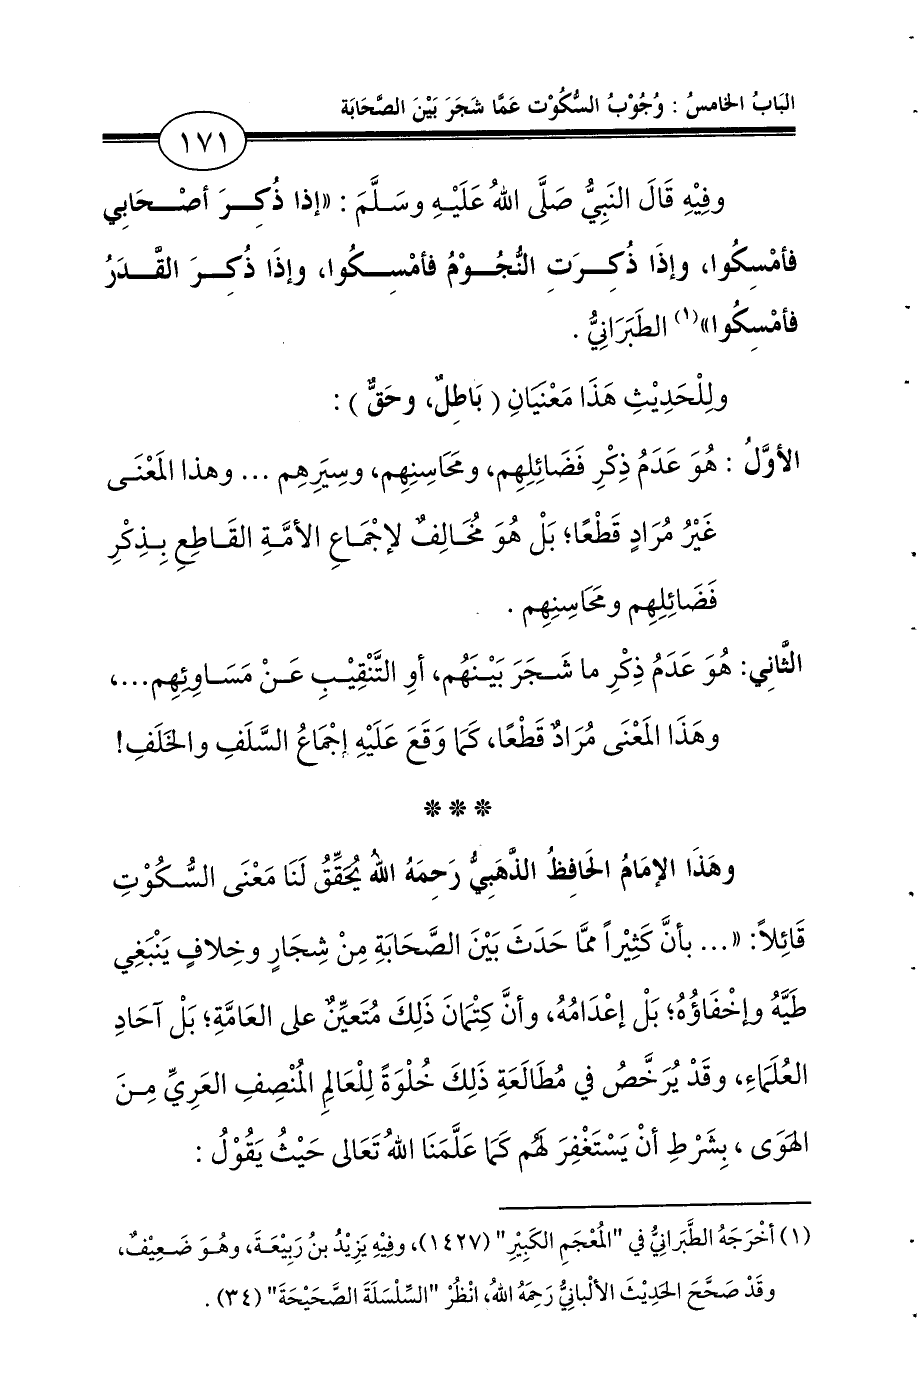 البَابُ الخامسُ : وُجُوْبُ السُّكُوْت عَمَّا شَجَرَ بَيْنَ الصَّحَابَة
١٧١
وفِيْهِ قَالَ النَّبِيُّ صَلَّى اللهُ عَلَيْهِ وسَلَّمَ : «إذا ذُكِرَ أصْحَابي
فأمْسِكُوا، وإذَا ذُكِرَتِ النُّجُوْمُ فأمْسِكُوا، وإذَا ذُكِرَ القَّدَرُ
فأمْسِكُوا»(١) الطَبَرَانِيُّ .
ولِلْحَدِيْثِ هَذَا مَعْنَيَانِ ( بَاطِلٌ، وحَقٌّ ) :
الأوَّلُ : هُوَ عَدَمُ ذِكْرِ فَضَائِلِهِم، ومَحَاسِنِهِم، وسِيَرِهِم ... وهذا المَعْنَى
غَيْرُ مُرَادٍ قَطْعًا؛ بَلْ هُوَ مُخَالِفٌ لإجْمَاعِ الأمَّةِ القَاطِعِ بِذِكْرِ
فَضَائِلِهِم ومَحَاسِنِهِم .
الثَّانِي: هُوَ عَدَمُ ذِكْرِ ما شَجَرَ بَيْنَهُم، أوِ التَّنْقِيْبِ عَنْ مَسَاوِئِهِم...،
وهَذَا المَعْنَى مُرَادٌ قَطْعًا، كَمَا وَقَعَ عَلَيْهِ إجْمَاعُ السَّلَفِ والخَلَفِ!
***
وهَذَا الإمَامُ الحَافِظُ الذَّهَبِيُّ رَحِمَهُ اللهُ يُحَقِّقُ لَنَا مَعْنَى السُّكُوْتِ
قَائِلاً: «... بأنَّ كَثِيْراً ممَّا حَدَثَ بَيْنَ الصَّحَابَةِ مِنْ شِجَارٍ وخِلافٍ يَنْبَغِي
طَيَّهُ وإخْفَاؤُهُ؛ بَلْ إعْدَامُهُ، وأنَّ كِتْمَانَ ذَلِكَ مُتَعيِّنٌ على العَامَّةِ؛ بَلْ آحَادِ
العُلَمَاءِ، وقَدْ يُرَخَّصُ في مُطَالَعَةِ ذَلِكَ خُلْوَةً لِلْعَالِمِ المُنْصِفِ العَرِيِّ مِنَ
الهَوَى ، بِشَرْطِ أنْ يَسْتَغْفِرَ لَهُم كَمَا عَلَّمَنَا اللهُ تَعَالى حَيْثُ يَقُوْلُ :
(١) أخْرَجَهُ الطَّبَرَانيُّ في "المُعْجَمِ الكَبِيْرِ" (١٤٢٧)، وفِيْهِ يَزِيْدُ بنُ رَبِيْعَةَ، وهُوَ ضَعِيْفٌ،
وقَدْ صَحَّحَ الحَدِيْثَ الألْبانيُّ رَحِمَهُ اللهُ، انْظُرْ "السِّلْسِلَةَ الصَّحَيْحَةَ" (٣٤) .